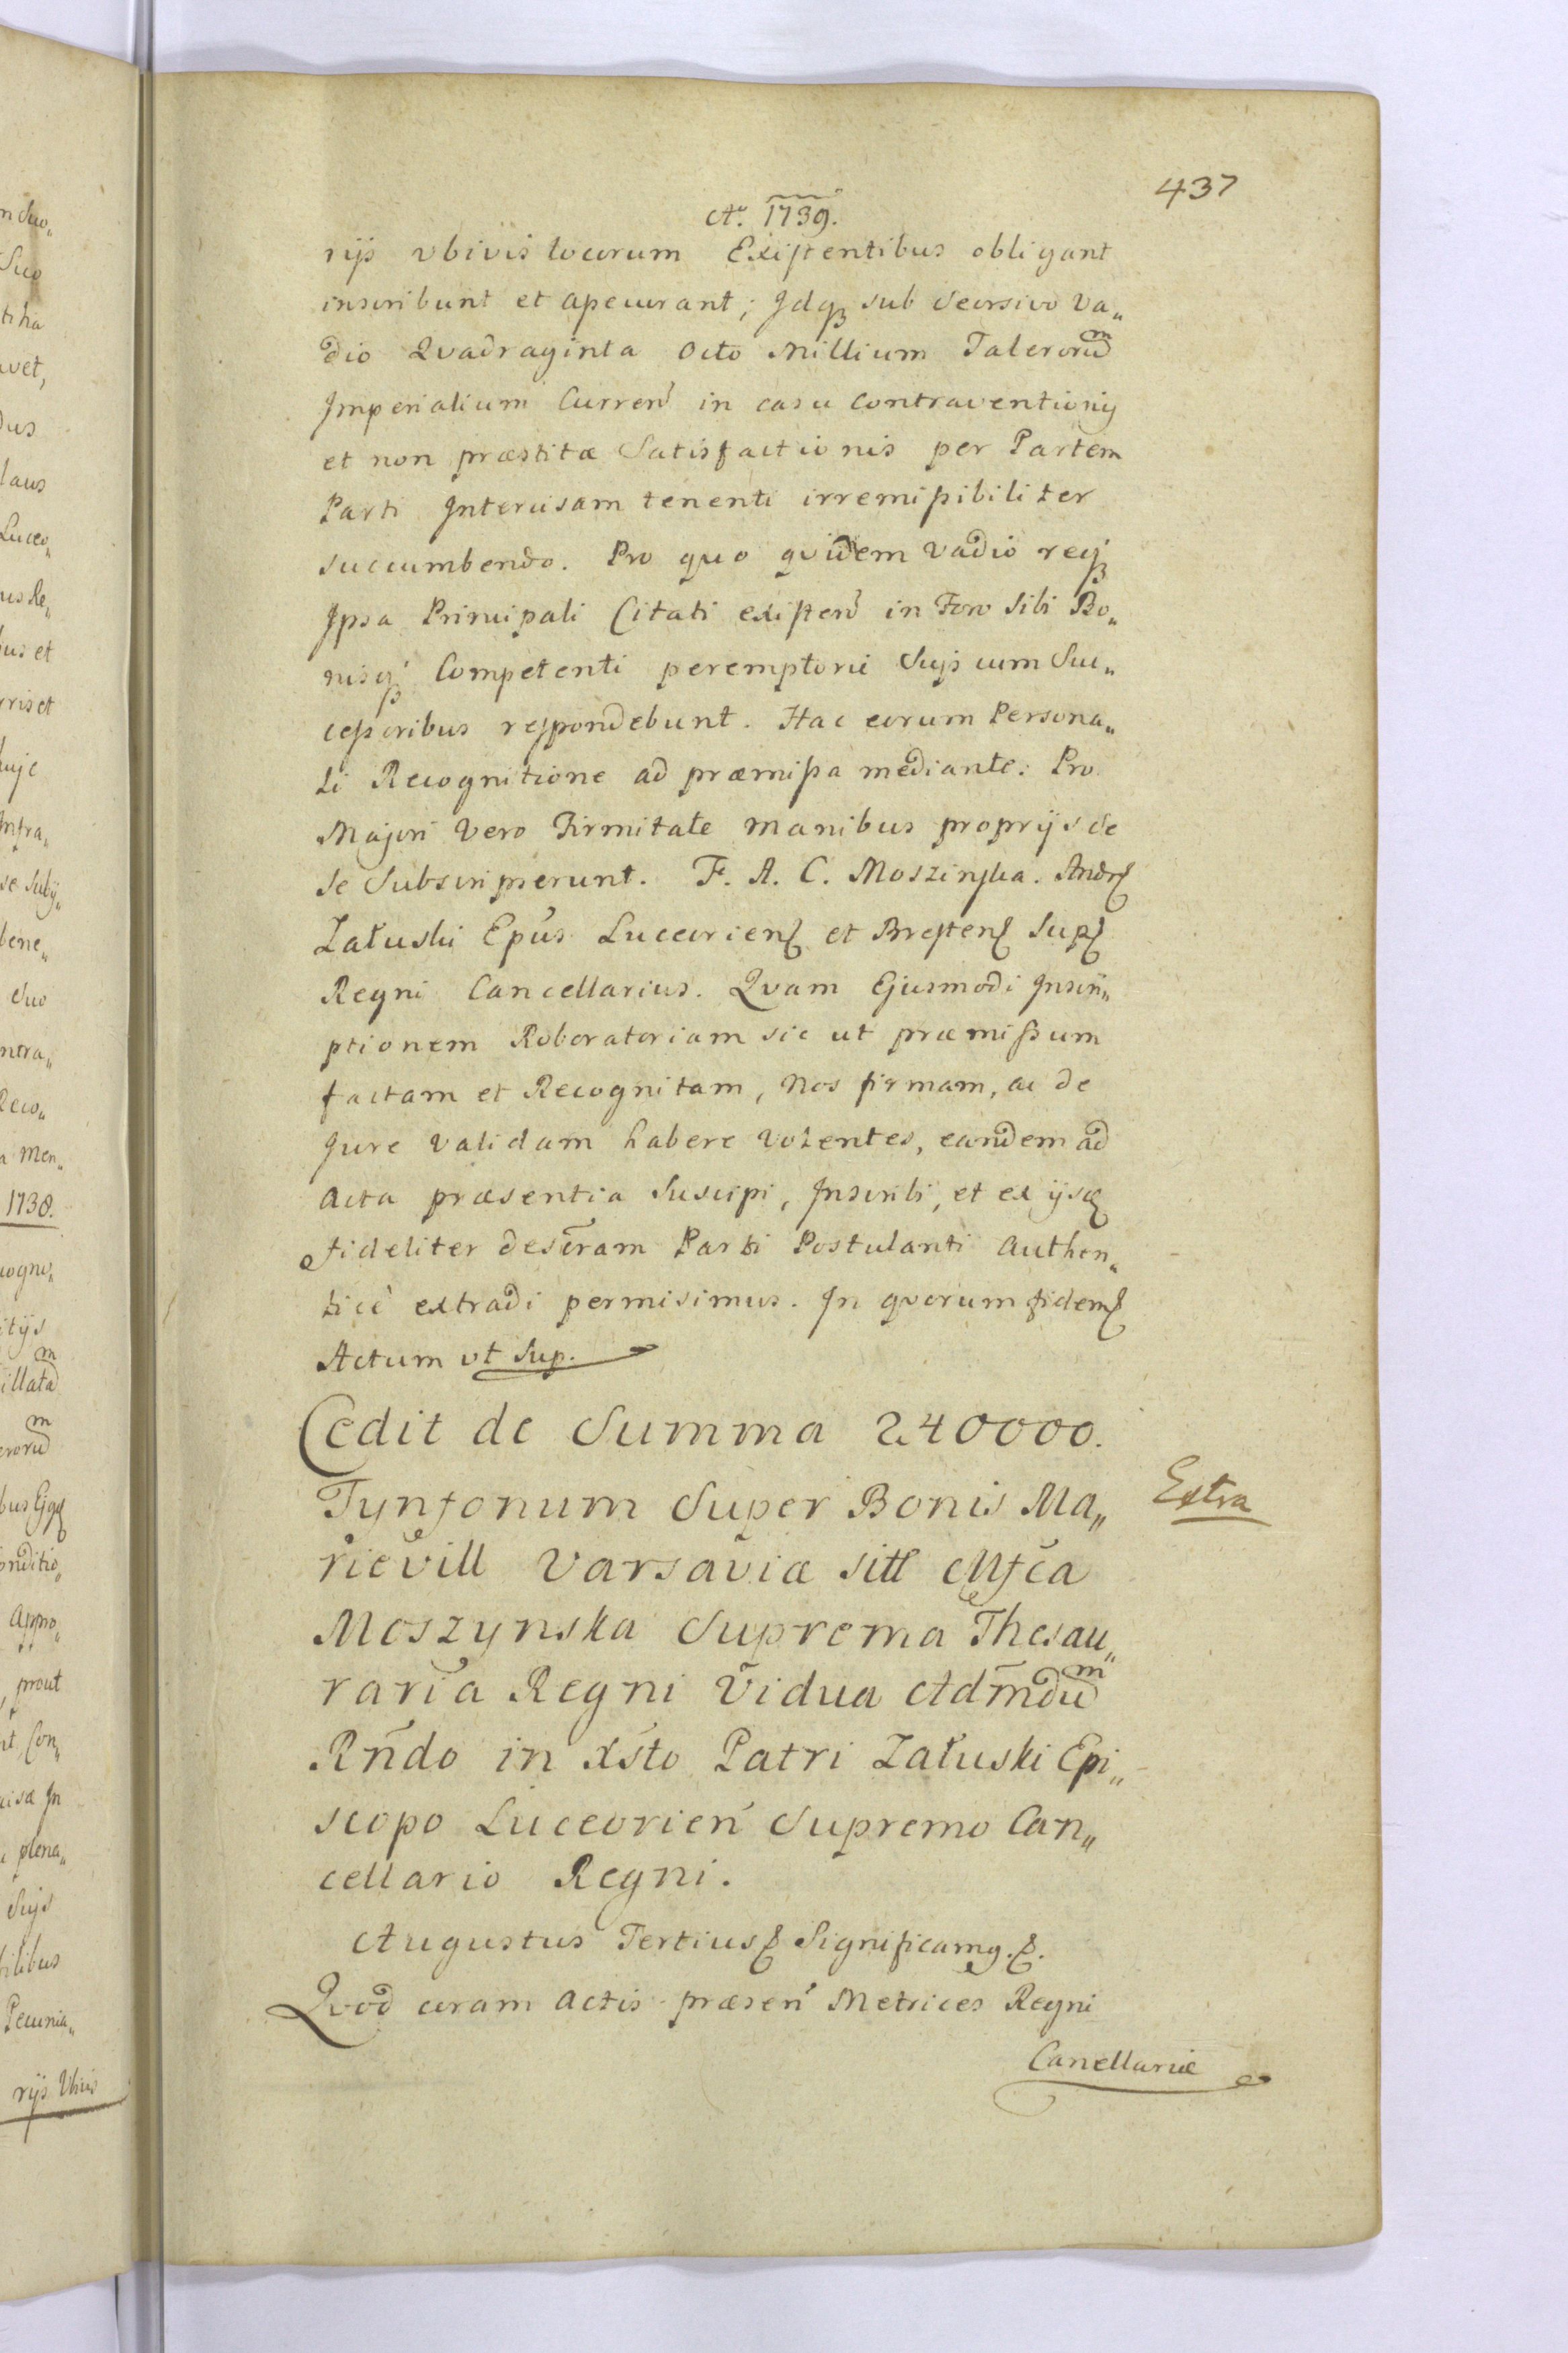 437
Aō. 1739.
rijs vbivis locorum Existentibus obligant
inscribunt et assecurant; Jdq3 sub seorsivo Va„
dio Qvadraginta octo Millium Talerorũm
Jmperialium Curreñ in casu contraventionis
et non præstitæ Satisfactionis per Partem
Parti Intercisam tenenti irremissibiliter
succumbendo. Pro quo qvidem vadio req3
Jpsa Principali Citati existeñ in Foro sibi Bo„
nisq3 Competenti peremptorie Suis cum Suc„
cessoribus respondebunt. Hac eorum Persona„
li Recognitione ad præmissa mediante. Pro
Majori vero Firmitate manibus proprijs se
se Subscripserunt. F. A. C. Moszinska. Andr.
Załuski Epũs Luceorien. et Bresten. Sup.
Regni Cancellarius. Qvam Ejusmodi Inscri„
ptionem Roboratoriam sic ut præmissum
factam et Recognitam, Nos firmam, ac de
Jure validam habere volentes, eandem ad
Acta præsentia Suscipi, Inscribi, et ex ijsdē
fideliter descr̃am Parti Postulanti Authen„
ticè extradi permisimus. In qvorum fidem.
Actum vt Sup.
Cedit de Summa 240000.
Extra
Tynfonum Super Bonis Ma„
rievill Varsaviæ sitt Mf̃ca
Moszynska Suprema Thesau„
raria Regni Vidua Adm̃dũm
Rñdo in Xs̃to Patri Załuski Epi„
scopo Luceorieñ Supremo Can„
cellario Regni.
Augustus Tertius. Significamg.
Qvod coram Actis præseñ Metrices Regni
Cancellariæ